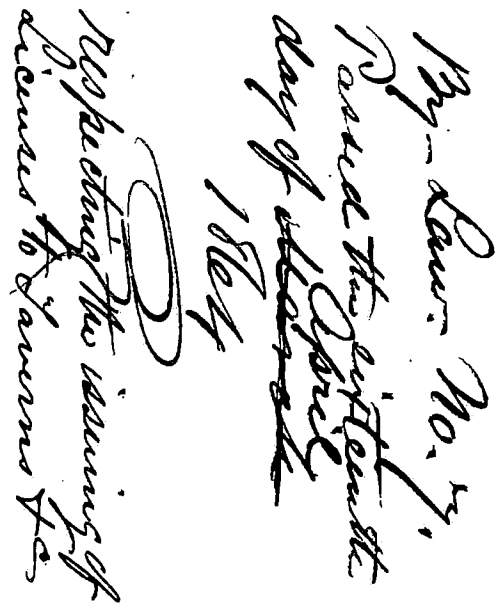 By-Law. No.
Passed the sixteenth
April
day of March
1864
respecting the issuing of
Licenses to Taverns &c